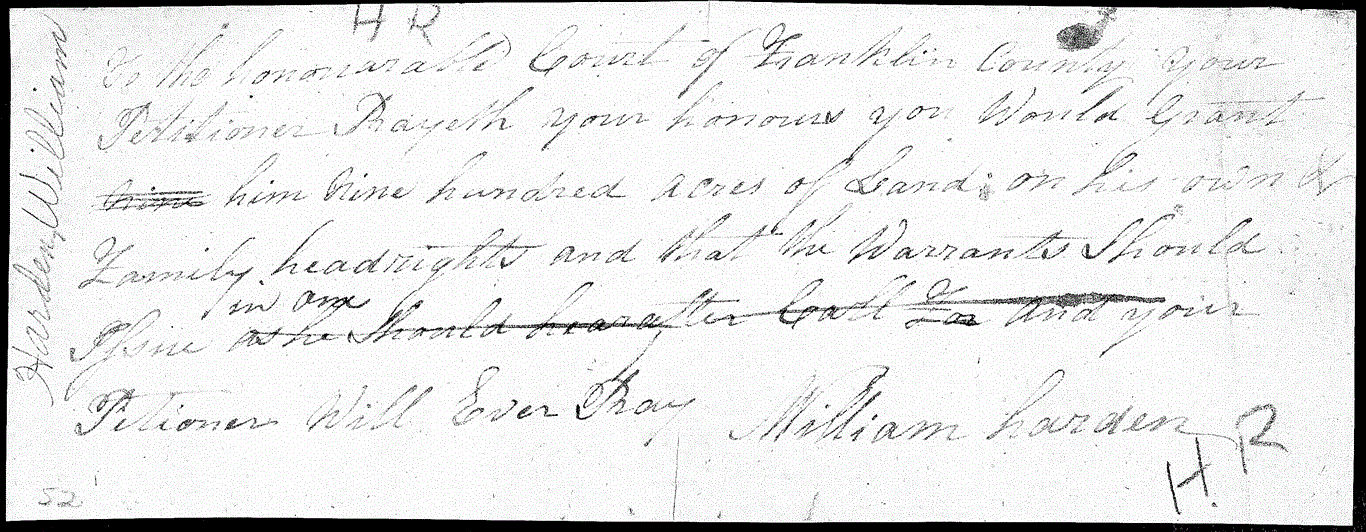 H R
Harden, William
To the honourable Court of Franklin County your
Petitioner Prayeth your honours you Would Grant
nine him nine hundred acres of Land: on his own &
Family headrights and that the Warrants Should
in one
Issue as he Should hearafter Call For and your
Petioner Will Ever Pray William harden
H. R
52